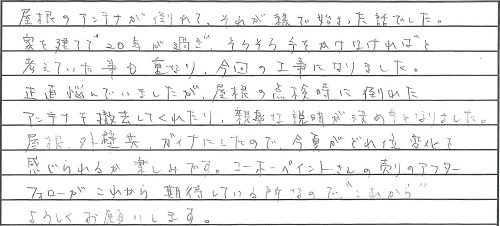 屋根のアンテナが倒れて、それが縁で始まった話でした。
家を建てて"20年が過ぎ"、そろそろ手をかけなければと
考えていた事も重なり、今回の工事になりました。
正直悩んでいましたが、屋根の点検時に倒れた
アンテナを撤去してくれたり、親身な説明が決め手となりました。
屋根、外壁共、ガイナにしたので、今夏がどれ位変化を
感じられるか楽しみです。ユーホーペイントさんの売りのアフター
フォローがこれから期待している所なので、"これから"
よろしくお願いします。